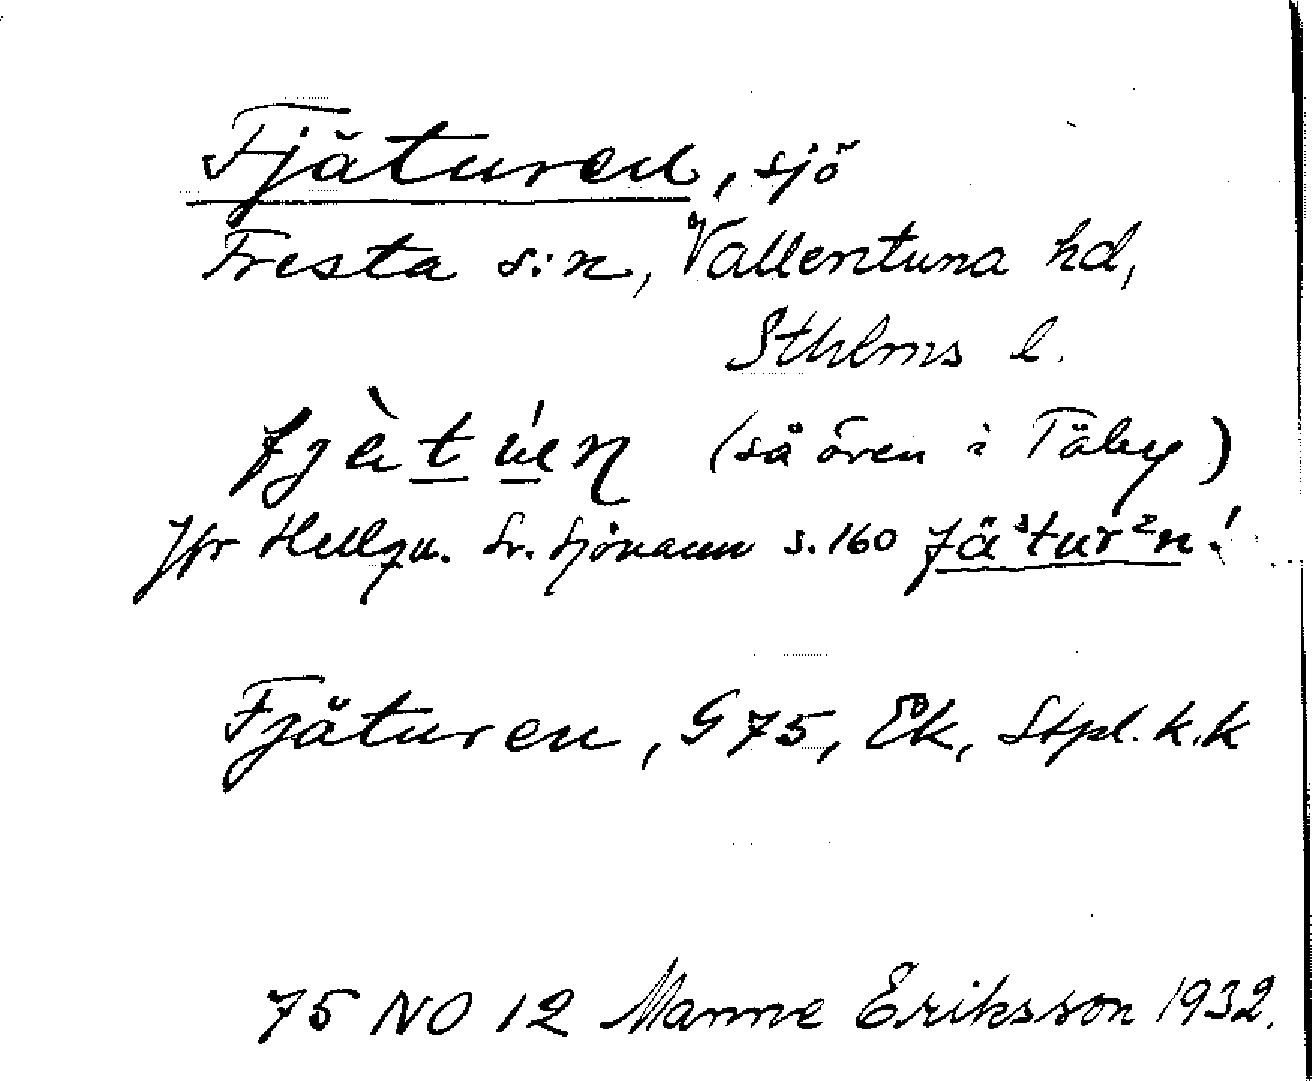 Fjäturen, sjö
Fresta s:n, Vallentuna hd,
Sthlms l.
(så även i Täby)
Jfr Hellqu. Sv. sjönamn s. 160 fjä³tur²n!
Fjäturen, G 75, Ek, Stpl. k.k
75 NO 12 Manne Eriksson 1932.